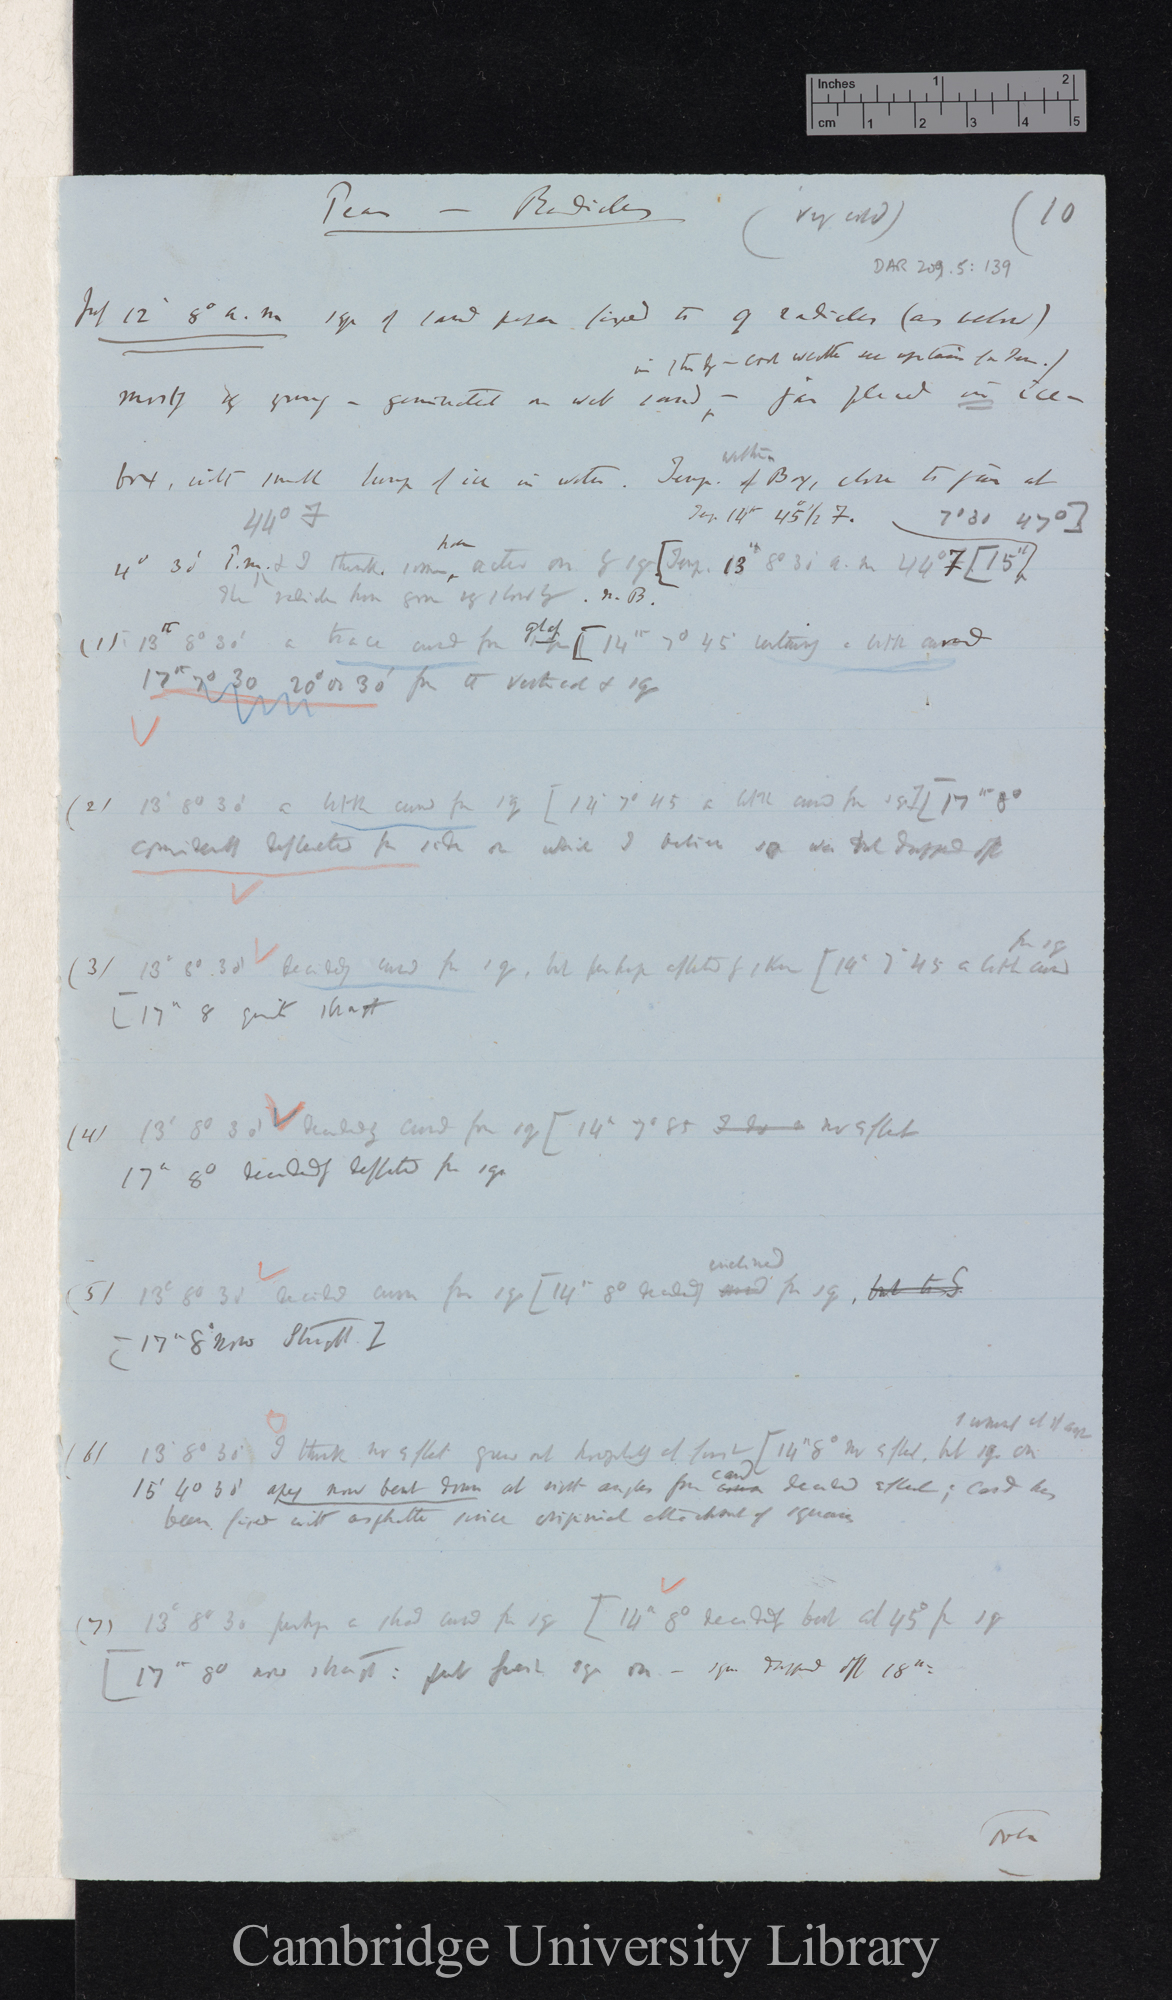 Inches 1 2
cm 1 2 3 4 5
Peas — Radicles (very cold) (10
DAR 209.5: 139
12 8° a.m sqs of sand paper fixed to 9 radicles (as below)
in study — cold weather see
mostly young — germinated on wet sand, — jar placed in ice-
within
box, with small lump of ice in water. Temp. of Box, close to jar at
44° F 14th 45°1/2 F. 7°30' 47°]
4° 30' P.m. & I think some have acted on by sq [Temp. 13th 8° 30' a.m 44° F [15th
The radicles have grown very slowly. N.B.
(1) 13th 8° 30' a trace curved from sq [14th 7° 45' certainly a little curved
17th 7° 30 20° or 30° from the vertical & sq
(2) 13 8° 30' a little curved from sq [14 7° 45 a little curved from sq] [17th 8°
considerably deflected from side on which I believe sq was but dropped off
(3) 13 8° 30' decidedly curved from sq, but perhaps affected by [14 7° 45 a little curved from sq
[17th 8 quite straight
(4) 13 8° 30' decidedly curved from sq [14th 7° no effect
17th 8° decidedly deflected from sq
(5) 13 8° 30' decided curve from sq [14th 8° decidedly inclined from sq,
[17th 8° now straight.]
(6) 13 8° 30' I think no effect grew out at first [14th 8° no effect, but sq on
15 4° 30' apex now bent down at right angles from card decided effect; card has
been fixed with asphalte since original attachment of square
(7) 13 8° 30 perhaps a shade curved from sq [14th 8° decidedly bent at 45° from sq
[17th 8° now straight: put fresh sq on — sqr dropped off 18th
Over
Cambridge University Library